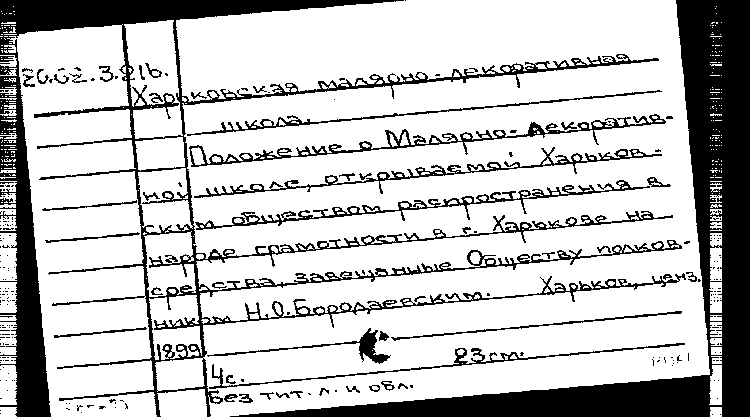 20.02.3.21б.
Харьковская малярно-декоративная
школа.
Положение о Малярно-декоратив-
ной школе, открываемой Харьков-
ским обществом распространения в
народе грамотности в г. Харькове на
средства, завещанные Обществу полков-
ником Н.О.Бородаевским. Харьков, ценз.
1899
4с. 23см.
Без тит. л. и обл.